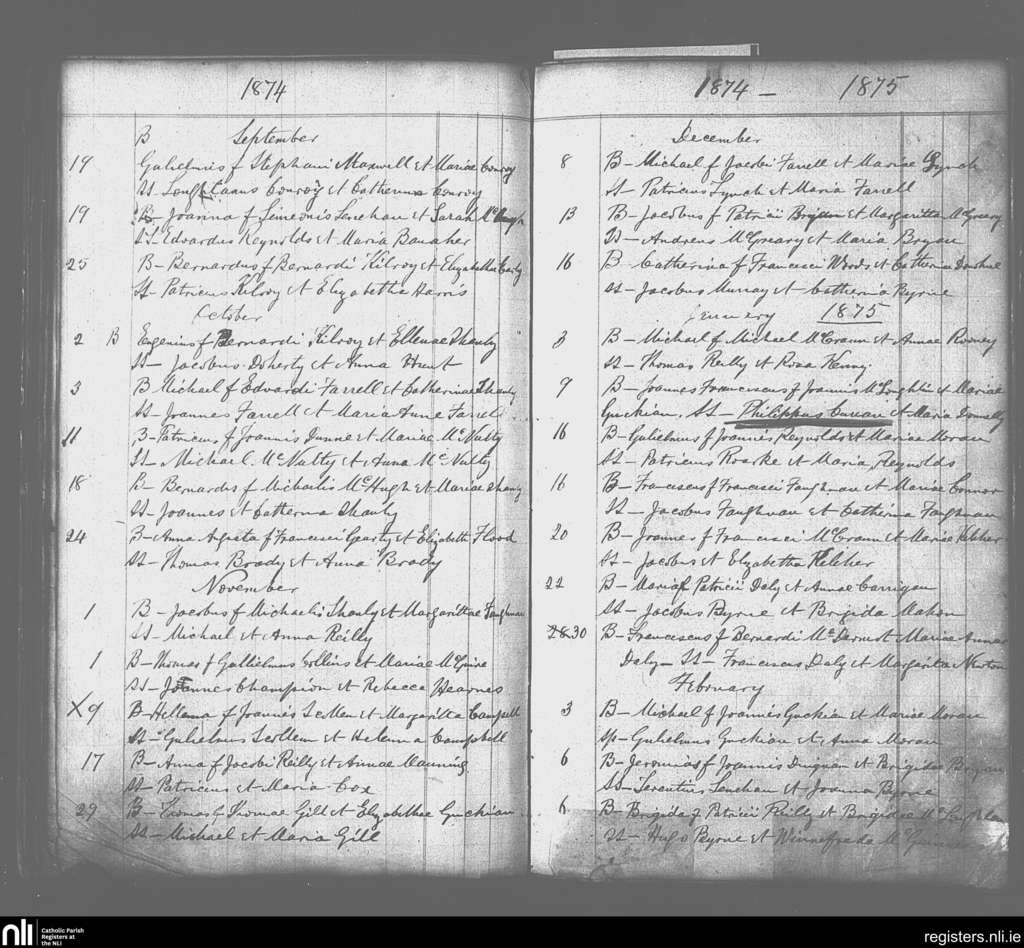 1874
B September
19 Gulielmus f Stephani Maxwell et Mariae Conroy
SS Conroy et Catherina Conroy
19 B- Joanna f Simeonis Lenehan et Sarah
SS Edvardus Reynolds et Maria Banaher
25 B- Bernardus f Bernardi Kilroy et Elizabethae
SS- Patricius Kilroy et Elizabetha Harris
October
2 B Eugenius f Bernardi Kilroy et Ellenae Shanly
SS- Jacobus Doherty et Anna Hunt
3 B Michael f Edvardi Farrell et Catherinae Shanly
SS- Joannes Farrell et Maria Anne Farrell
11 B- Patricius f Joannis Dunne et Mariae McNulty
SS- Michael McNulty et Anna McNulty
18 B- Bernardus f Michaelis McHugh et Mariae Shanly
SS Joannes et Catherina Shanly
24 B- Anna f Francisci Gearty et Elizabeth Flood
SS- Thomas Brady et Anna Brady
November
1 B- Jacobus f Michaelis Shanly et Margarittae Faughnan
SS- Michael et Anna Reilly
1 B- Thomas f Gullielmus Collins et Mariae McGuire
SS- Joannes Champion et Rebecca Hearnes
X 9 B- Hellena f Joannis et Margaritta Campbell
SS- Gulielmus et Helenna Campbell
17 B- Anna f Jacobi Reilly et Annae Manning
SS- Patricius et Maria Cox
29 B- Thomas f Thomae Gill et Elizabethae Guckian
SS- Michael et Maria Gill
1874 - 1875
December
8 B- Michael f Jacobi Farrell et Mariae Lynch
SS- Patricius Lynch et Maria Farrell
13 B- Jacobus f Patricii Bryan et Margaritta McGreary
SS- Andreas McGreary et Maria Bryan
16 B Catherina f Francisci Woods et Catherina
SS- Jacobus Murray et Catherina Byrne
January 1875
3 B- Michael f Michael McCrann et Annae Rooney
SS- Thomas Reilly et Rosa Kenny
9 B- Joannes Franciscus f Joannis McLoghlin et Mariae
Guckian. SS- Philippus Curran et Maria Donnelly
16 B- Gulielmus f Joannis Reynolds et Mariae Moran
SS- Patricius Roarke et Maria Reynolds
16 B- Franciscus f Francisci Faughnan et Mariae Connor
SS- Jacobus Faughnan et Catherina Faughnan
20 B- Joannes f Francisci McCrann et Mariae Keleher
SS- Jacobus et Elizabetha Keleher
22 B- Maria f Patricii Daly et Annae Carrigan
SS- Jacobus Byrne et Brigida Mahon
28 30 B- Franciscus f Bernardi McDermot Mariae Annae
Daly- SS- Franciscus Daly et Margarita Newton
February
3 B- Michael f Joannis Guckian et Mariae Moran
SS- Gulielmus Guckian et Anna Moran
6 B- Jeremias f Joannis Duignan et Brigidae Bryan
SS- Lenehan et Joanna Byrne
6 B- Brigida f Patricii Reilly et Brigidae
SS- Hugo Byrne et Winnefreda
nli Catholic Parish
Registers at
the NLI
registers.nli.ie